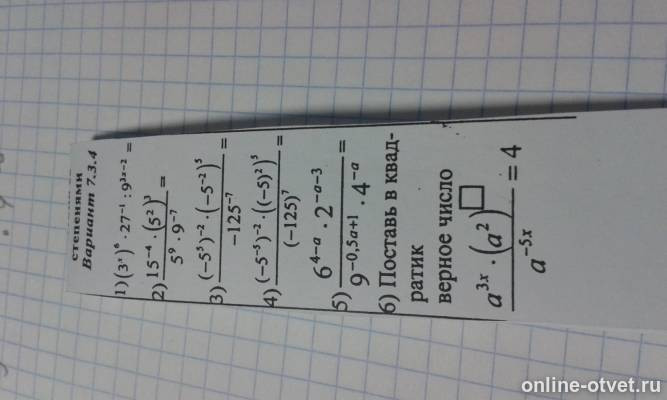 степенями
Вариант 7.3.4
1) (3ˣ)⁶ · 27⁻¹ : 9²ˣ⁻² =
2) (15⁻⁴ · (5²)³) / (5⁹ · 9⁻⁷) =
3) ((-5³)⁻² · (-5⁻²)⁵) / (-125⁻⁷) =
4) ((-5⁻³)⁻² · ((-5)²)⁵) / ((-125)⁷) =
5) (6^(4-a) · 2^(-a-3)) / (9^(-0,5a+1) · 4^(-a)) =
6) Поставь в квад-
ратик
верное число
(a^(3x) · (a²)^□) / (a^(-5x)) = 4
online-otvet.ru